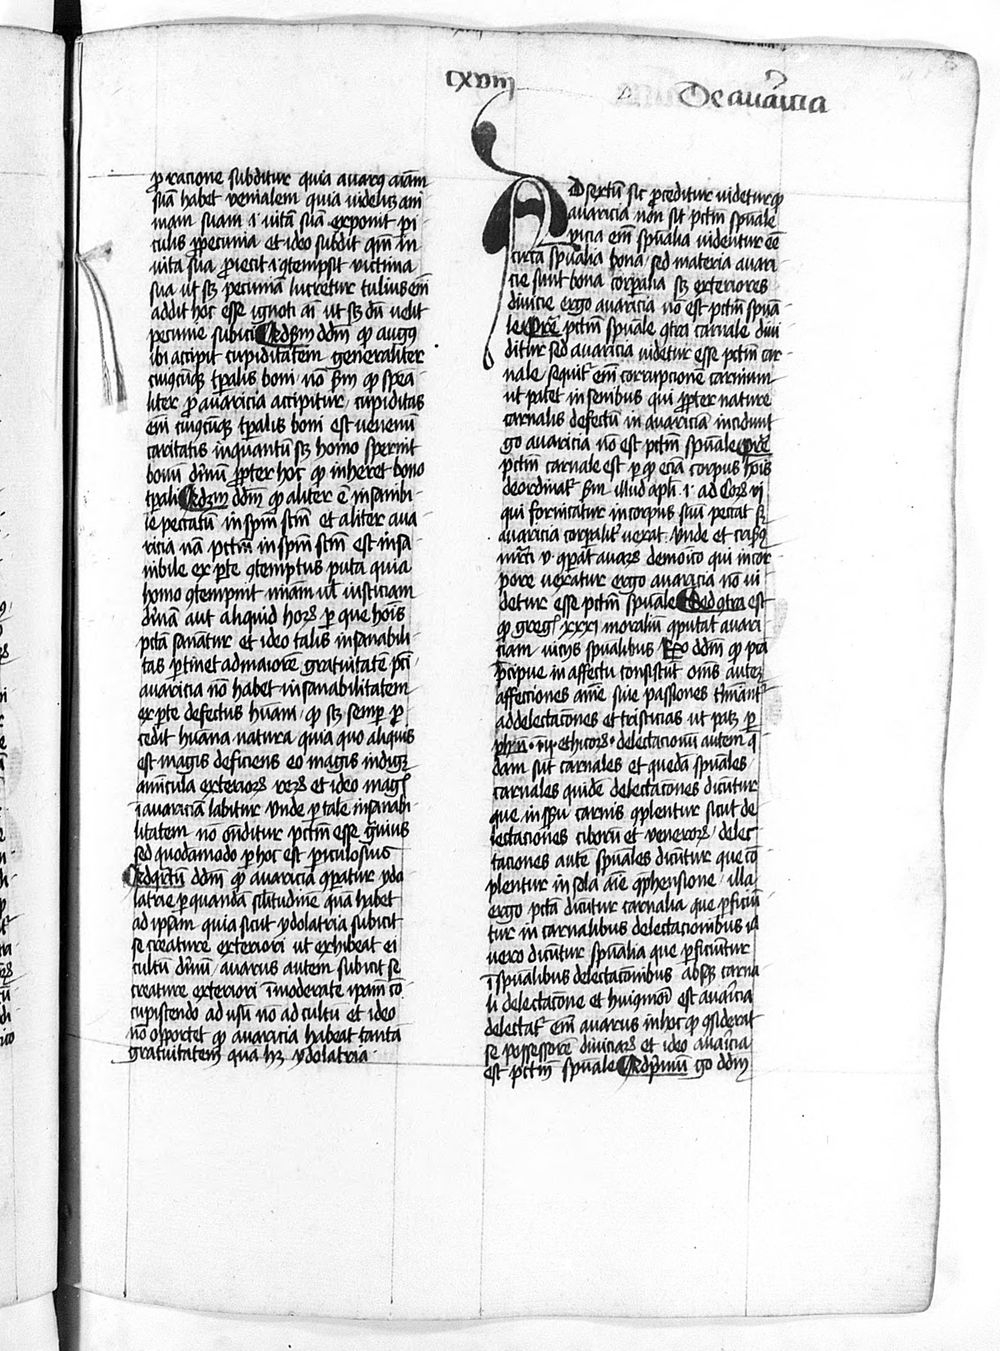 cxviij
De auaricia
pro racione subditur quia auarus aīam
suā habet venalem quia videlicet ani
mam suam .i. vitā suā exponit pi
culis pro pecunia et ideo subdit qm̄ in
vita sua proiecit .i. ꝯtempsit victima
sua ut scꝫ pecuniam lucretur tulius em̄
addit hoc esse ignoti aī ut scꝫ dū velit
pecunie subici Ad p̄m dd̄m ꝙ augꝰ
ibi accipit cupiditatem generaliter
cuiꝰcūqꝫ tꝑalis boni nō ẜm ꝙ speā
liter ꝓ auaricia accipitur cupiditas
em̄ cuiꝰcūqꝫ tꝑalis boni est venenū
caritatis inquantū scꝫ homo spernit
bonū diuinū ꝓpter hoc ꝙ inheret bono
tꝑali Ad 2m dd̄m ꝙ aliter ē insanibi
le peccatū in spm̄ scm̄ et aliter aua
ricia nā pctm̄ in spm̄ scm̄ est insa
nibile ex ꝑte ꝯtemptus puta quia
homo ꝯtempnit mīam ul̄ iusticiam
diuinā aut aliquid hoꝝ ꝑ que hoīs
pctā sanātur et ideo talis insanabili
tas ꝑtinet ad maiorē grauitatē pcti
auaricia nō habet insanabilitatem
ex ꝑte defectus hūani ꝙ scꝫ semper ꝓ
cedit hūana natura quia quo aliquis
est magis deficiens eo magis indiget
aminicula exterioꝝ reꝝ et ideo magꝭ
ī auariciā labitur Vnde ꝑ tale insanabi
litatem nō oñditur pctm̄ esse grauius
sed quodamodo ꝑ hoc est ꝑiculosius
Ad qrtū dd̄m ꝙ auaricia ꝯparatur ydo
latrie ꝑ quandā silitudinē quā habet
ad ipsam quia sicut ydolatria subicit
se creature exteriori ut exhibeat ei
cultū diuinū auarus autem subicit se
creature exteriori īmoderate ipam cō
cupiscendo ad usū nō ad cultū et ideo
nō oportet ꝙ auaricia habeat tantā
grauitatem quā hꝫ ydolatria
Ad sextū sic proceditur videtur ꝙ
auaricia non sit pctm̄ spūale
vicia em̄ spūalia videntur eē
circa spūalia bona sed materia auari
cie sunt bona corꝑalia scꝫ exteriores
diuicie ergo auaricia nō est pctm̄ spūa
le Pret̄ pctm̄ spūale ꝯtra carnale diui
ditur sed auaricia videtur esse pctm̄ car
nale sequit̄ em̄ corrupcionē carnium
ut patet in senibus qui ꝓpter nature
carnalis defectū in auariciā incidunt
go auaricia nō est pctm̄ spūale Pret̄
pctm̄ carnale est ꝑ ꝙ eciā corpus hoīs
deordinat̄ ẜm illud apl̄i .i. ad Coꝝ vi
qui fornicatur in corpus suū peccat sꝫ
auaricia corꝑalit̄ vexat Vnde et crisꝰ
marci v ꝯparat auaꝝ demoīaco qui in cor
pore vexatur ergo auaricia nō vi
detur esse pctm̄ spūale Sed ꝯtra est
ꝙ gregꝰ xxxi moraliū ꝯputat auari
ciam viciis spūalibus Rn̄o dd̄m ꝙ pcā
precipue in affectu consistūt om̄s autē
affectiones anime siue passiones terminant̄
ad delectacones et tristicias ut patꝫ ꝑ
ph̄m .ij. ethicoꝝ delectacionū autem q̄
dam sūt carnales et quedā spūales
carnales quidē delectacōnes dicūtur
que in sēsu carnis ꝯplentur sicut de
lectaciones ciboꝝ et venereoꝝ delec
taciones autē spūales dicūtur que cō
plentur in sola aīe apprehensione illa
ergo pctā dicūtur carnalia que ꝑficiū
tur in carnalibus delectacionibus illa
uero dicūtur spūalia que ꝑficiūtur
ī spūalibus delectacōnibus absqꝫ carna
li delectacōne et huiusmodi est auaricia
delectat̄ em̄ auarus in hoc ꝙ ꝯsiderat
se possessorē diuiciaꝝ et ideo auaricia
est pctm̄ spūale Ad primū go dd̄m